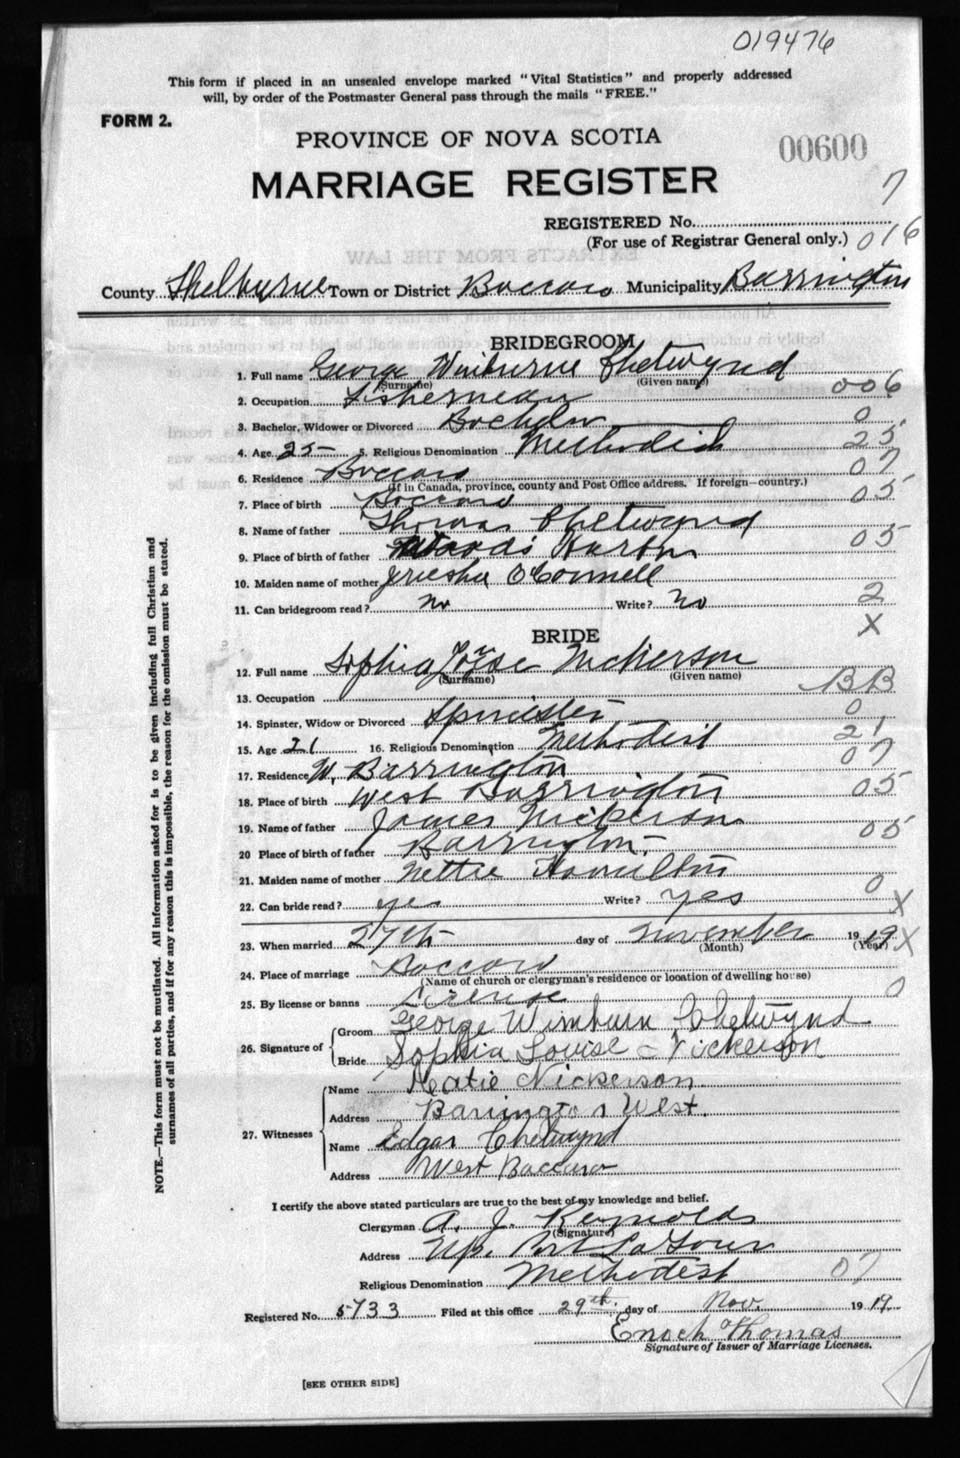 019476
This form if placed in an unsealed envelope marked "Vital Statistics" and properly addressed
will, by order of the Postmaster General pass through the mails "FREE."
FORM 2.
PROVINCE OF NOVA SCOTIA
00600
MARRIAGE REGISTER
7
REGISTERED No.
(For use of Registrar General only.) 016
EXTRACTS FROM THE LAW
County Shelburne Town or District Baccaro Municipality Barrington
BRIDEGROOM
1. Full name George Winburne Chetwynd
(Surname) (Given name)
2. Occupation Fisherman 006
3. Bachelor, Widower or Divorced Bachelor 0
4. Age 25 5. Religious Denomination Methodist 25
6. Residence Baccaro 07
(If in Canada, province, county and Post Office address. If foreign—country.)
7. Place of birth Baccaro 05
8. Name of father Thomas Chetwynd
9. Place of birth of father Woods Harbor 05
10. Maiden name of mother O'Connell
11. Can bridegroom read? No Write? No 2
X
BRIDE
12. Full name Sophia Nickerson
(Surname) (Given name)
13. Occupation BB
14. Spinster, Widow or Divorced Spinster 0
15. Age 21 16. Religious Denomination Methodist 21
17. Residence W. Barrington 07
18. Place of birth West Barrington 05
19. Name of father James Nickerson
20 Place of birth of father Barrington. 05
21. Maiden name of mother Nettie Hamilton
22. Can bride read? yes Write? yes 0 X
23. When married 27th day of November 1919 X
(Month) (Year)
24. Place of marriage Baccaro
(Name of church or clergyman's residence or location of dwelling house)
25. By license or banns License 0
26. Signature of Groom George Winburn Chetwynd
Bride Sophia Louise Nickerson
27. Witnesses Name Katie Nickerson
Address Barrington West.
Name Edgar Chetwynd
Address West Baccaro
I certify the above stated particulars are true to the best of my knowledge and belief.
Clergyman A. J. Reynolds
(Signature)
Address Up. Port LaTour
Religious Denomination Methodist 07
Registered No. 5733 Filed at this office 29th day of Nov. 1919.
Enoch Thomas
Signature of Issuer of Marriage Licenses.
[SEE OTHER SIDE]
NOTE.—This form must not be mutilated. All information asked for is to be given including full Christian and
surnames of all parties, and if for any reason this is impossible, the reason for the omission must be stated.